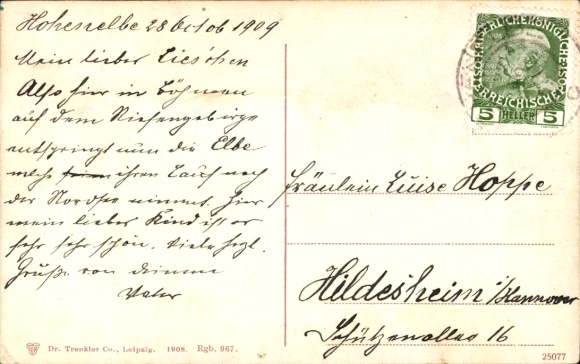 Hohenelbe 28 Octob 1909
Mein lieber Lieschen
Also hier in Böhmen
auf dem Riesengebirge
entspringt nun die Elbe
welche ihren Lauf nach
der Nordsee nimmt. Hier
mein liebes Kind ist es
sehr sehr schön. Viele hrzl.
Grüße von deinem
Vater
Fräulein Luise Hoppe
Hildesheim i/Hannover
Schützenallee 16
KAISERLICHE KÖNIGLICHE
ÖSTERREICHISCHE
5 HELLER 5
Dr. Trenkler Co., Leipzig. 1908. Rgb. 967.
25077